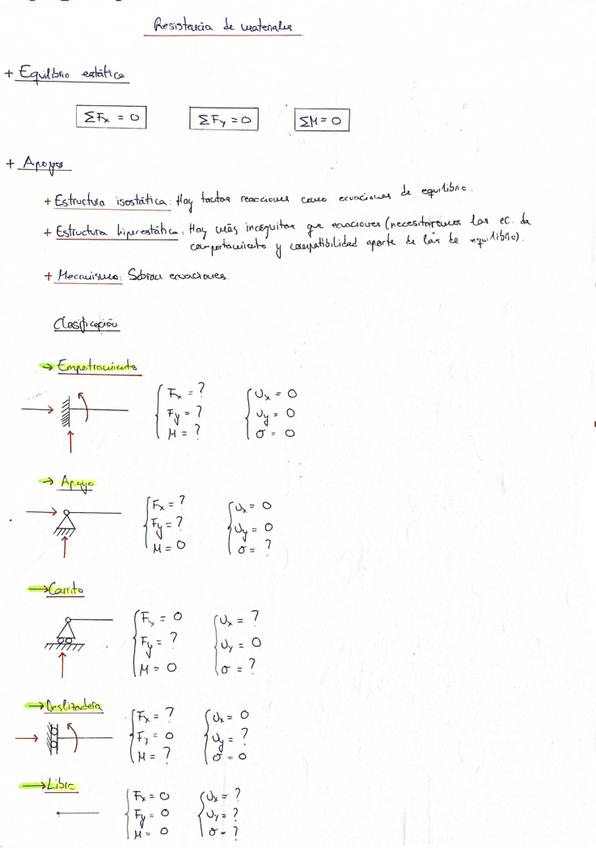 Resistencia de materiales
+ Equilibrio estático
ΣFx = 0 ΣFy = 0 ΣM = 0
+ Apoyos
+ Estructura isostática: Hay tantas reacciones como ecuaciones de equilibrio.
+ Estructura hiperestática: Hay más incógnitas que ecuaciones (necesitaremos las ec. de
comportamiento y compatibilidad aparte de las de equilibrio).
+ Mecanismo: Sobran ecuaciones.
Clasificación
→ Empotramiento
Fx = ? Ux = 0
Fy = ? Uy = 0
M = ? σ = 0
→ Apoyo
Fx = ? Ux = 0
Fy = ? Uy = 0
M = 0 σ = ?
→ Carrito
Fx = 0 Ux = ?
Fy = ? Uy = 0
M = 0 σ = ?
→ Deslizadera
Fx = ? Ux = 0
Fy = 0 Uy = ?
M = ? σ = 0
→ Libre
Fx = 0 Ux = ?
Fy = 0 Uy = ?
M = 0 σ = ?